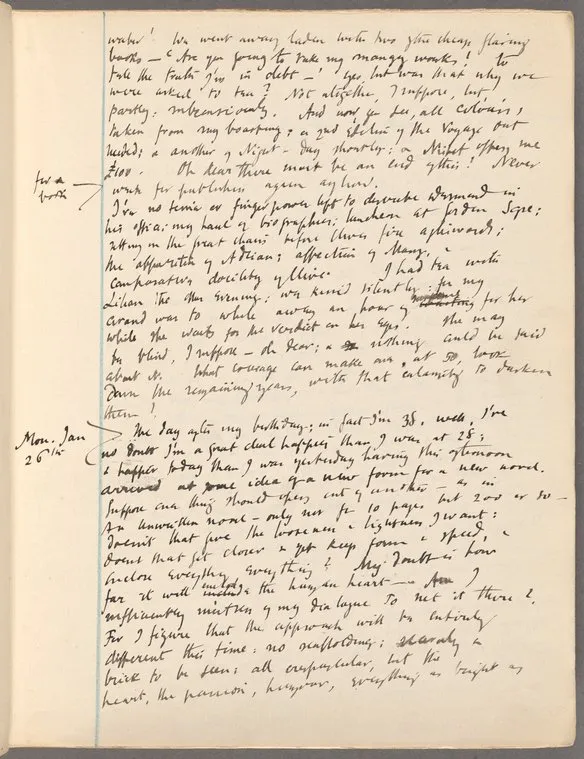 water! We went away laden with two of the cheap flaring
books — "Are you going to take my mangy works? To
tell the truth I'm in debt —" Yes, but was that why we
were asked to tea? Not altogether, I suppose, but,
partly; subconsciously. And now, you see, all colours,
taken from my boasting; a 2nd Edition of the Voyage Out
needed; & another of Night & Day shortly; & Nisbet offers me
£100. Oh dear there must be an end of this! Never
write for publishers again anyhow.
for a
book
I've no time or finger power left to describe Desmond in
his office; my haul of biographies; luncheon at Gordon Sqre;
sitting in the great chairs before fire afterwards;
the apparition of Adrian; affection of Mary, &
comparative docility of I had tea with
Lilian the other Evening; we kissed silently; for my
errand was to while away an hour of for her
while she waits for the verdict on her Eyes. She may
be blind, I suppose — oh dear; & nothing could be said
about it. What courage can make one, at 50, look
down the remaining years, with that calamity to darken
them!
Mon. Jan
26th
The day after my birthday; in fact I'm 38. Well, I've
no doubt I'm a great deal happier than I was at 28;
& happier today than I was yesterday having this afternoon
arrived at some idea of a new form for a new novel.
Suppose one thing should open out of another — as in
An Unwritten Novel — only not for 10 pages but 200 or so —
doesn't that give the looseness & lightness I want:
doesnt that get closer & yet keep form & speed, &
enclose everything, everything? My doubt is how
far it will include the human heart — Am I
sufficiently mistress of my dialogue to net it there?
For I figure that the approach will be entirely
different this time: no scaffolding; scarcely a
brick to be seen; all crepuscular, but the
heart, the passion, humour, everything as bright as